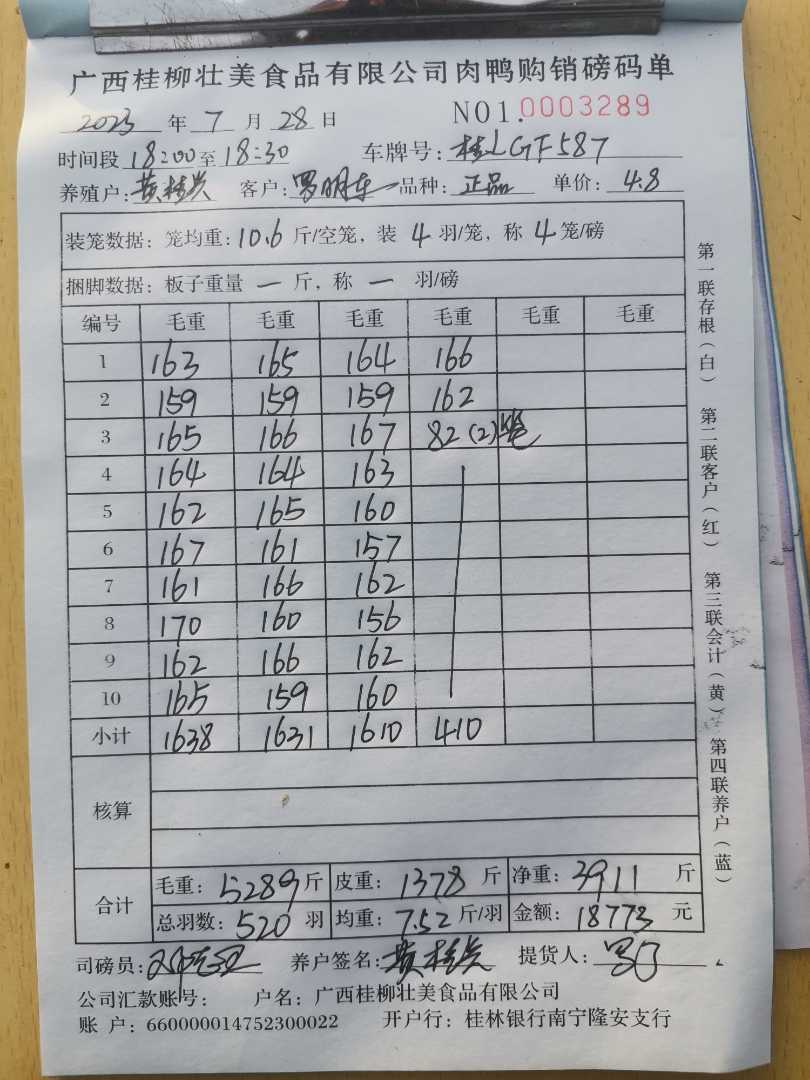 广西桂柳壮美食品有限公司肉鸭购销磅码单
2023 年 7 月 28 日 NO1.0003289
时间段 18:00 至 18:30 车牌号: 桂LGF587
养殖户: 黄桂兴 客户: 罗明车 品种: 正品 单价: 4.8
装笼数据: 笼均重: 10.6 斤/空笼, 装 4 羽/笼, 称 4 笼/磅
捆脚数据: 板子重量 一 斤, 称 一 羽/磅
编号 毛重 毛重 毛重 毛重 毛重 毛重
1 163 165 164 166
2 159 159 159 162
3 165 166 167 82(2)笼
4 164 164 163
5 162 165 160
6 167 161 157
7 161 166 162
8 170 160 156
9 162 166 162
10 165 159 160
小计 1638 1631 1610 410
核算
合计 毛重: 5289 斤 皮重: 1378 斤 净重: 3911 斤
总羽数: 520 羽 均重: 7.52 斤/羽 金额: 18773 元
司磅员: 养户签名: 黄桂兴 提货人:
公司汇款账号: 户名: 广西桂柳壮美食品有限公司
账 户: 660000014752300022 开户行: 桂林银行南宁隆安支行
第一联存根(白) 第二联客户(红) 第三联会计(黄) 第四联养户(蓝)